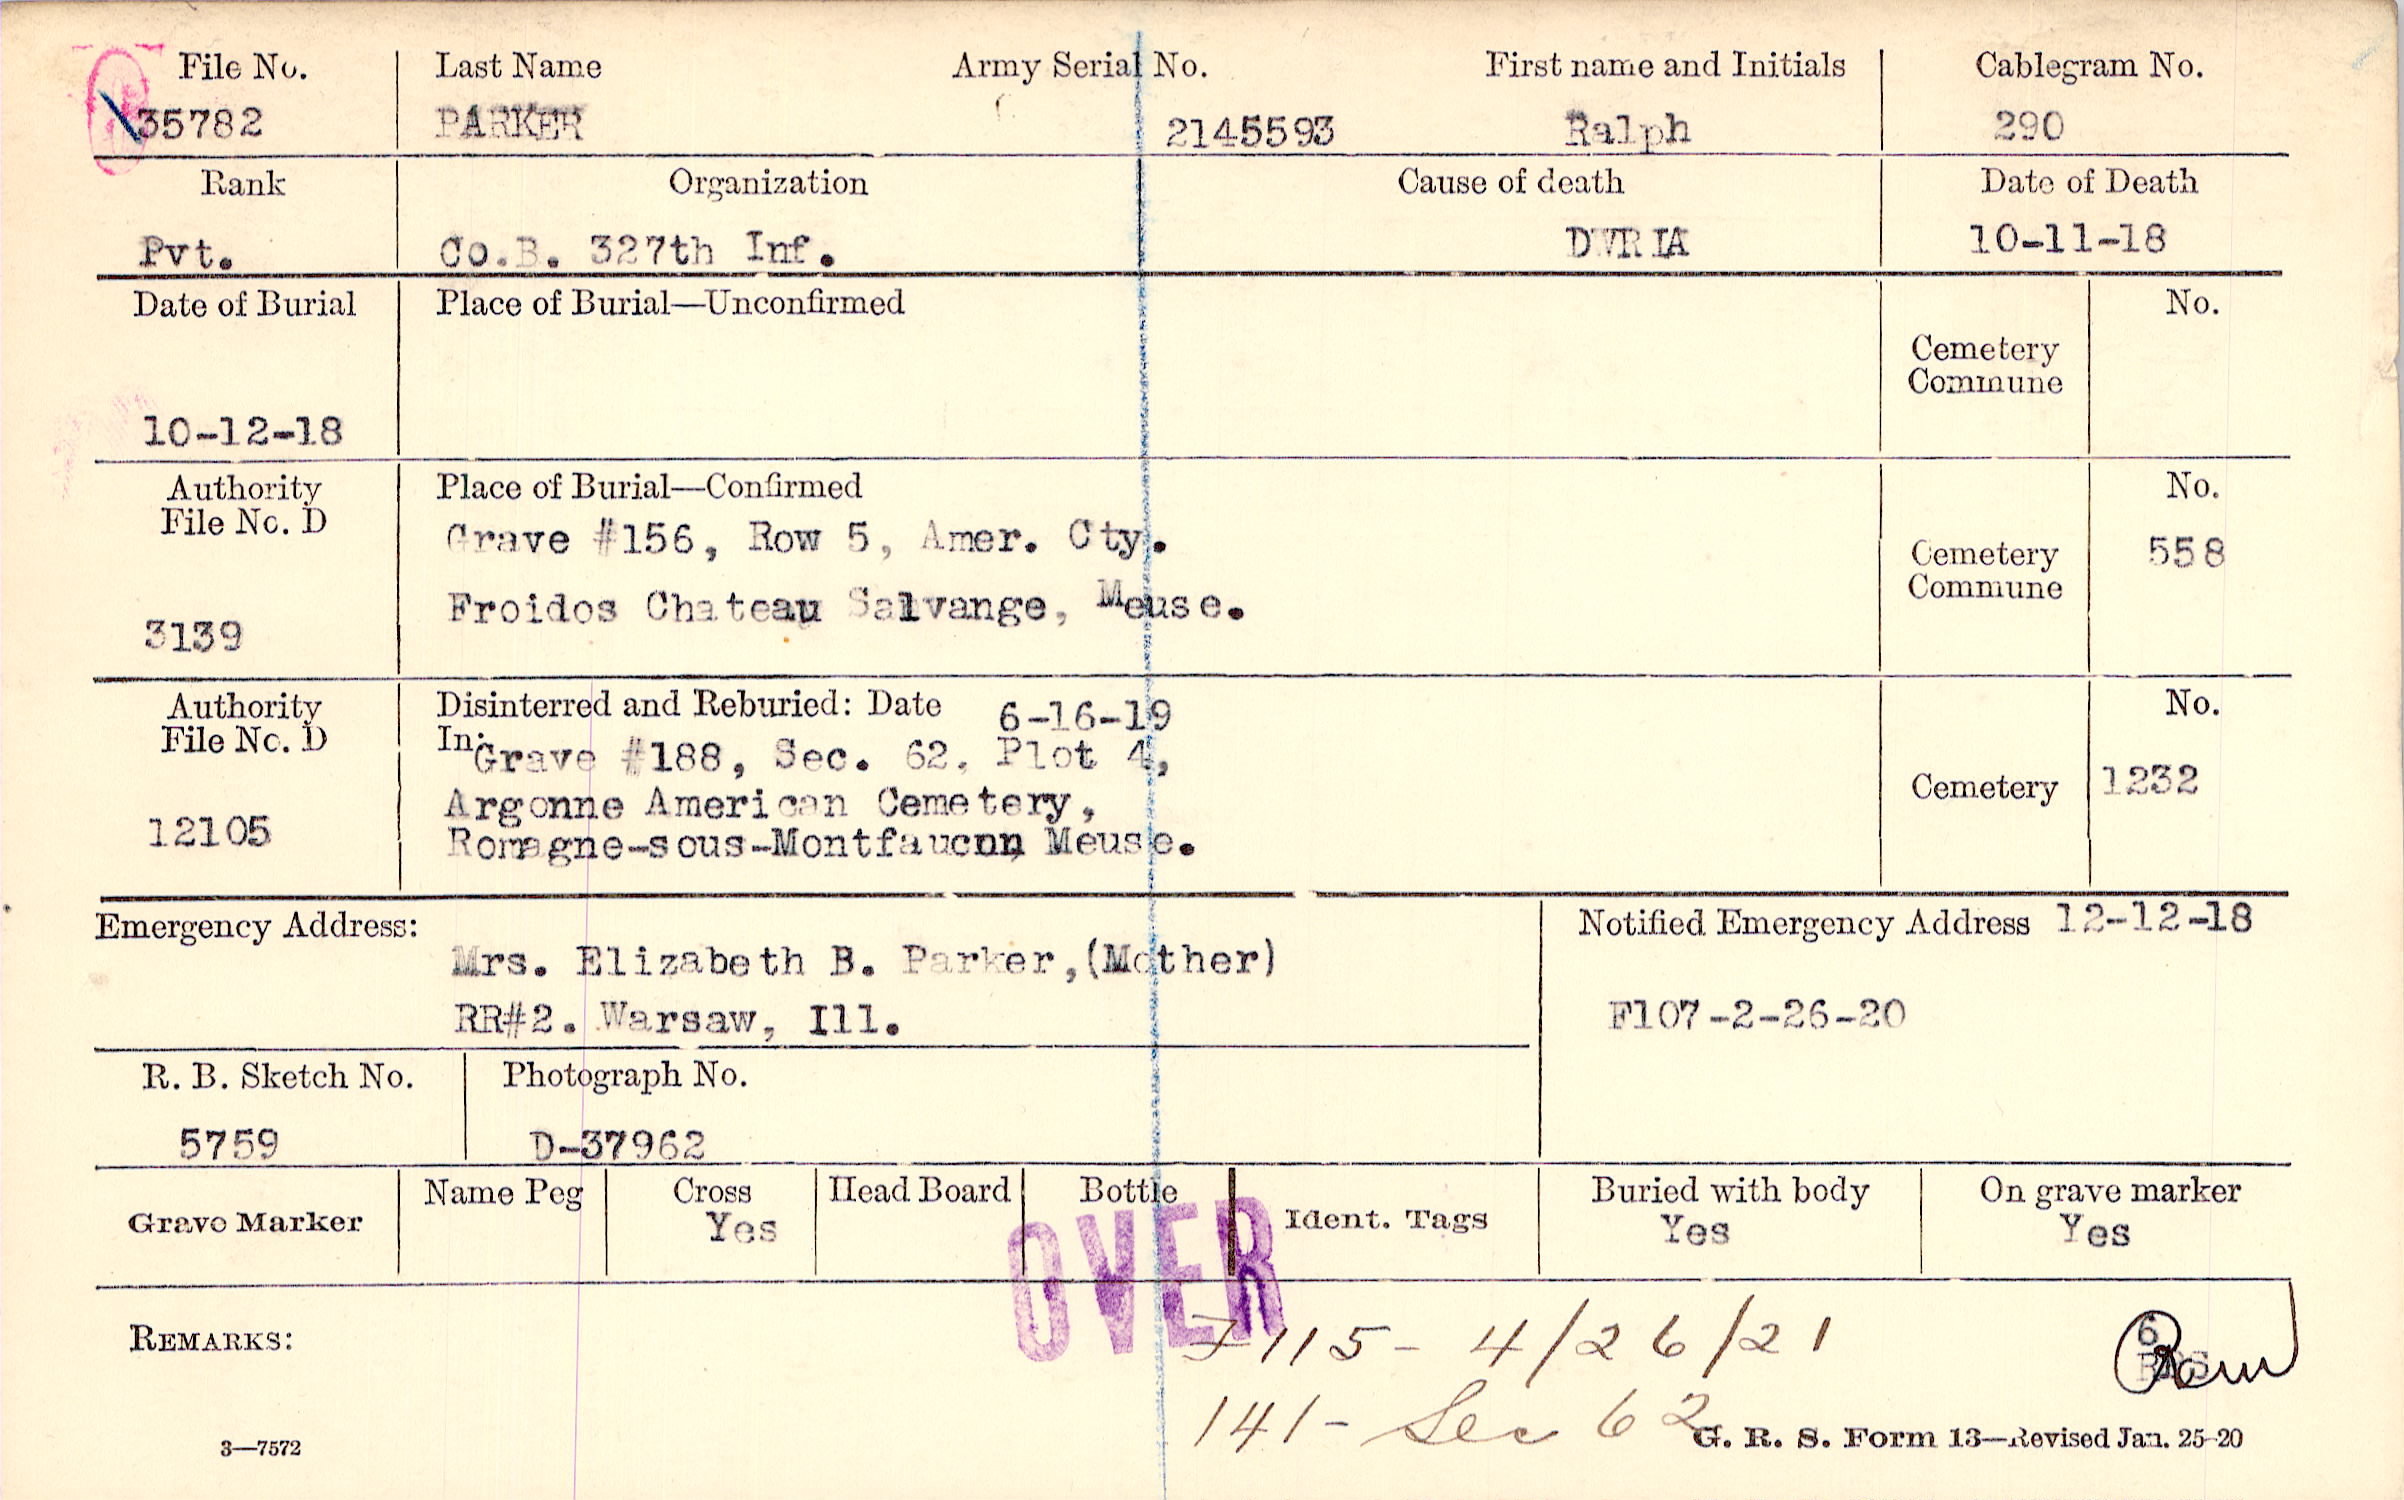 File No. Last Name Army Serial No. First name and Initials Cablegram No.
35782 PARKER 2145593 Ralph 290
Rank Organization Cause of death Date of Death
Pvt. Co.B. 327th Inf. DWRIA 10-11-18
Date of Burial Place of Burial—Unconfirmed No.
Cemetery
Commune
10-12-18
Authority Place of Burial—Confirmed No.
File No. D
Grave #156, Row 5, Amer. Cty. Cemetery 558
Commune
Froidos Chateau Salvange, Meuse.
3139
Authority Disinterred and Reburied: Date 6-16-19 No.
File No. D In:
Grave #188, Sec. 62. Plot 4,
Argonne American Cemetery, Cemetery 1232
12105 Romagne-sous-Montfaucon Meuse.
Emergency Address: Notified Emergency Address 12-12-18
Mrs. Elizabeth B. Parker,(Mother)
RR#2. Warsaw, Ill. F107-2-26-20
R. B. Sketch No. Photograph No.
5759 D-37962
Grave Marker Name Peg Cross Head Board Bottle Ident. Tags Buried with body On grave marker
Yes Yes Yes
OVER
REMARKS: F115- 4/26/21 6
141- Sec 62
3—7572 G. R. S. Form 13—Revised Jan. 25-20